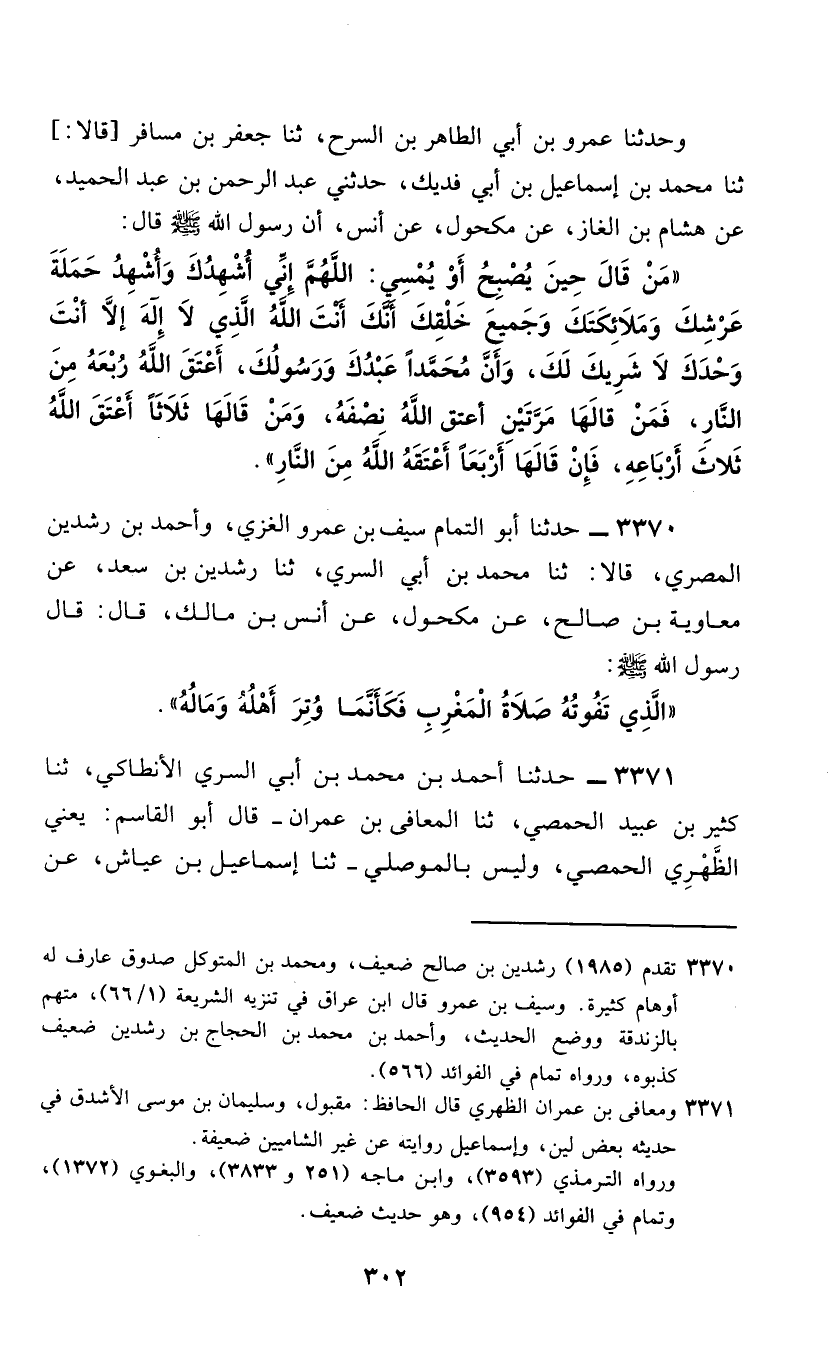 وحدثنا عمرو بن أبي الطاهر بن السرح، ثنا جعفر بن مسافر [قالا:]
ثنا محمد بن إسماعيل بن أبي فديك، حدثني عبد الرحمن بن عبد الحميد،
عن هشام بن الغاز، عن مكحول، عن أنس، أن رسول الله ﷺ قال:
«مَنْ قَالَ حِينَ يُصْبِحُ أَوْ يُمْسِي: اللَّهُمَّ إِنِّي أُشْهِدُكَ وَأُشْهِدُ حَمَلَةَ
عَرْشِكَ وَمَلَائِكَتَكَ وَجَمِيعَ خَلْقِكَ أَنَّكَ أَنْتَ اللَّهُ الَّذِي لَا إِلَٓهَ إلاَّ أَنْتَ
وَحْدَكَ لَا شَرِيكَ لَكَ، وَأَنَّ مُحَمَّداً عَبْدُكَ وَرَسُولُكَ، أَعْتَقَ اللَّهُ رُبْعَهُ مِنَ
النَّارِ، فَمَنْ قالَهَا مَرَّتَيْنِ أعتق اللَّهُ نِصْفَهُ، وَمَنْ قَالَهَا ثَلَاثَاً أَعْتَقَ اللَّهُ
ثَلَاثَ أَرْبَاعِهِ، فَإِنْ قَالَهَا أَرْبَعَاً أَعْتَقَهُ اللَّهُ مِنَ النَّارِ».
٣٣٧٠ ــ حدثنا أبو التمام سيف بن عمرو الغزي، وأحمد بن رشدين
المصري، قالا: ثنا محمد بن أبي السري، ثنا رشدين بن سعد، عن
معاوية بن صالح، عن مكحول، عن أنس بن مالك، قال: قال
رسول الله ﷺ:
«الَّذِي تَفُوتُهُ صَلَاةُ الْمَغْرِبِ فَكَأَنَّمَا وُتِرَ أَهْلُهُ وَمَالُهُ».
٣٣٧١ ــ حدثنا أحمد بن محمد بن أبي السري الأنطاكي، ثنا
كثير بن عبيد الحمصي، ثنا المعافى بن عمران ـ قال أبو القاسم: يعني
الظَّهْرِي الحمصي، وليس بالموصلي ـ ثنا إسماعيل بن عياش، عن
٣٣٧٠ تقدم (١٩٨٥) رشدين بن صالح ضعيف، ومحمد بن المتوكل صدوق عارف له
أوهام كثيرة. وسيف بن عمرو قال ابن عراق في تنزيه الشريعة (٦٦/١)، متهم
بالزندقة ووضع الحديث، وأحمد بن محمد بن الحجاج بن رشدين ضعيف
كذبوه، ورواه تمام في الفوائد (٥٦٦).
٣٣٧١ ومعافى بن عمران الظهري قال الحافظ: مقبول، وسليمان بن موسى الأشدق في
حديثه بعض لين، وإسماعيل روايته عن غير الشاميين ضعيفة.
ورواه الترمذي (٣٥٩٣)، وابن ماجه (٢٥١ و ٣٨٣٣)، والبغوي (١٣٧٢)،
وتمام في الفوائد (٩٥٤)، وهو حديث ضعيف.
٣٠٢